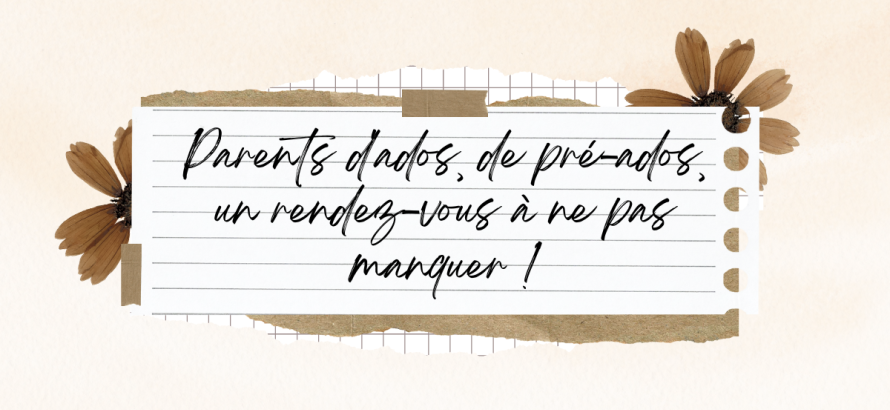 Parents d'ados, de pré-ados,
un rendez-vous à ne pas
manquer !